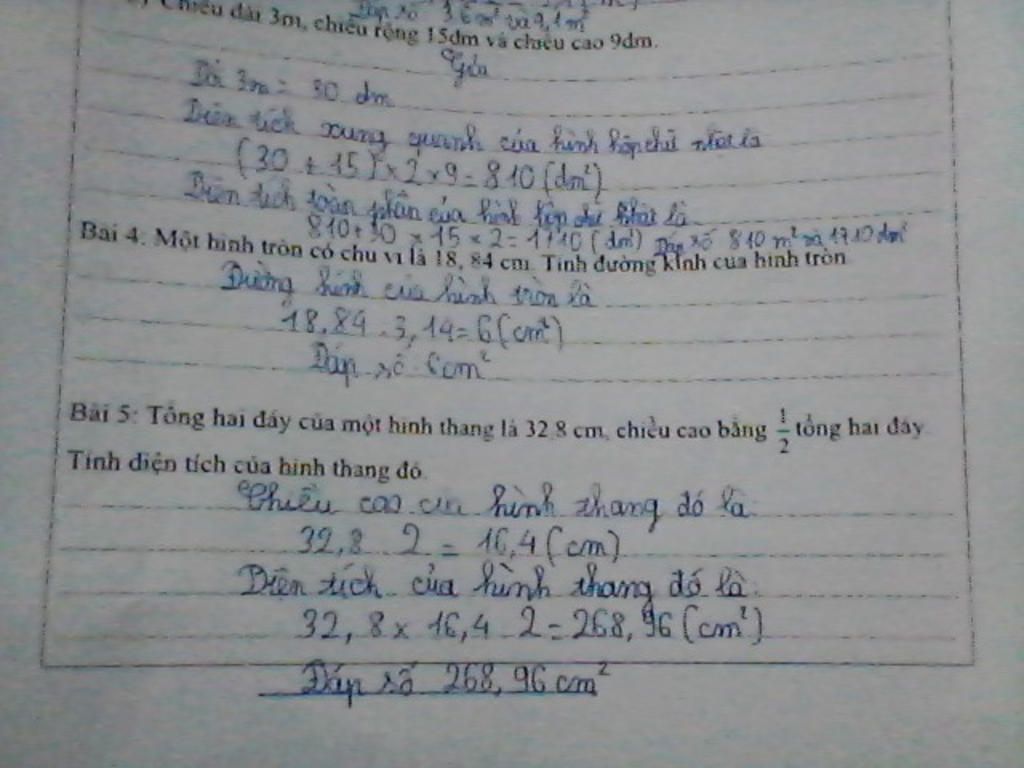 Đáp số 3,6 m² và 9,1 m²
Chiều dài 3m, chiều rộng 15dm và chiều cao 9dm.
Giải
Đổi 3m = 30 dm
Diện tích xung quanh của hình hộp chữ nhật là
(30 + 15) × 2 × 9 = 810 (dm²)
Diện tích toàn phần của hình hộp chữ nhật là
810 + 30 × 15 × 2 = 1710 (dm²) Đáp số 810 m² và 1710 dm²
Bài 4: Một hình tròn có chu vi là 18, 84 cm. Tính đường kính của hình tròn
Đường kính của hình tròn là
18,84 : 3,14 = 6 (cm²)
Đáp số 6cm²
Bài 5: Tổng hai đáy của một hình thang là 32,8 cm, chiều cao bằng 1/2 tổng hai đáy.
Tính diện tích của hình thang đó.
Chiều cao của hình thang đó là
32,8 2 = 16,4 (cm)
Diện tích của hình thang đó là:
32,8 × 16,4 2 = 268,96 (cm²)
Đáp số 268,96 cm²